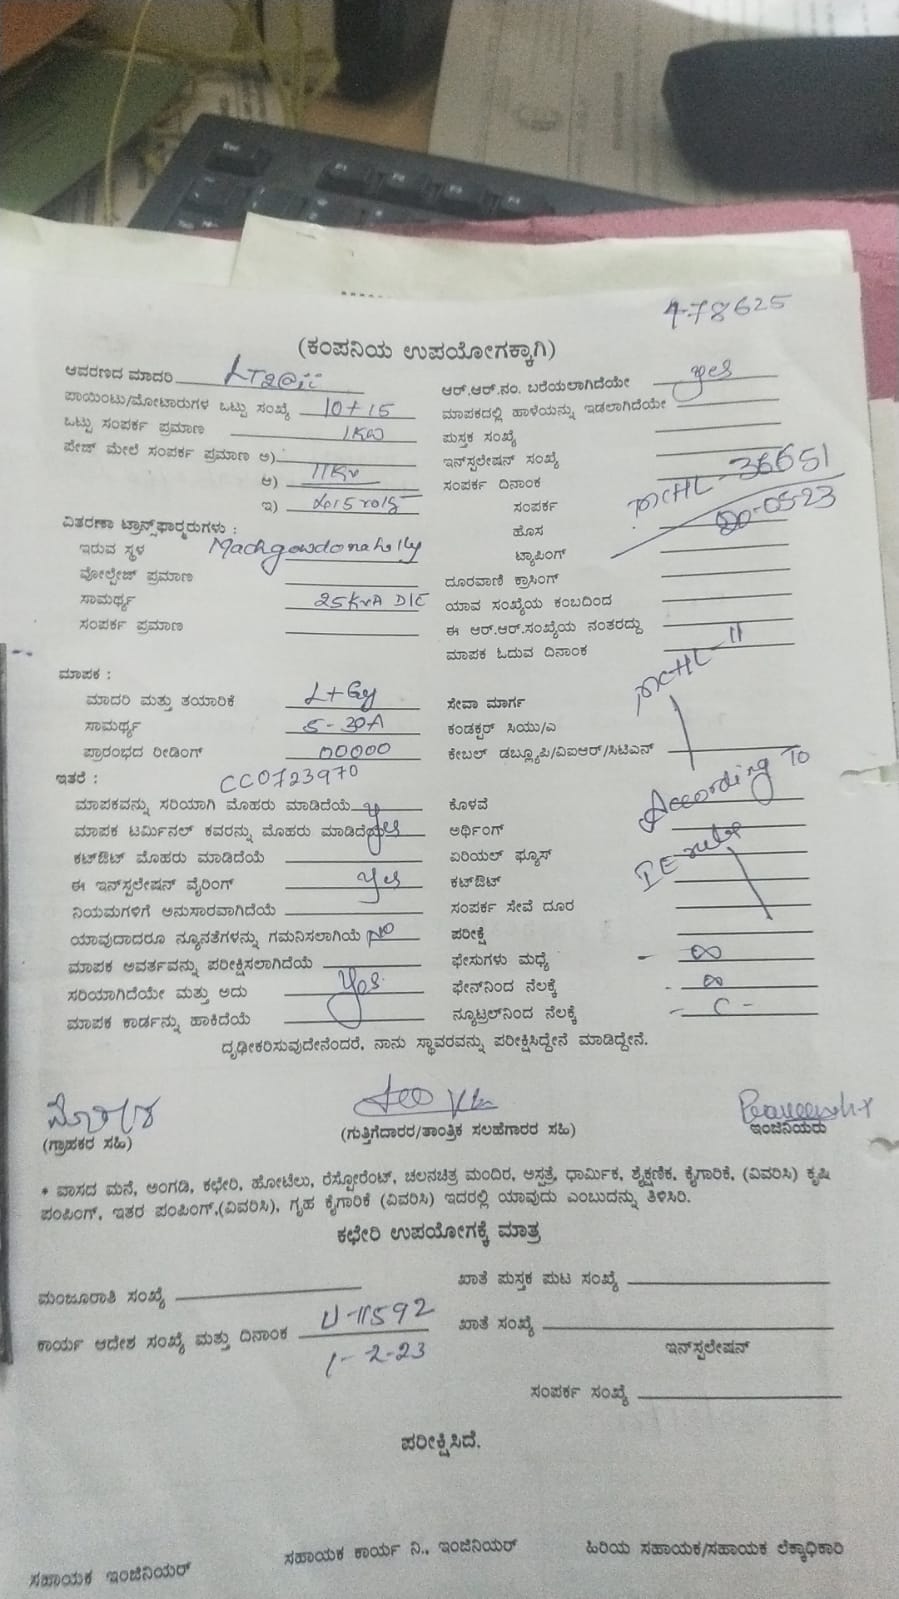 Esc F1 F2 F3 F4
4-78625
(ಕಂಪನಿಯ ಉಪಯೋಗಕ್ಕಾಗಿ)
ಆವರಣದ ಮಾದರಿ LT2@ii
ಪಾಯಿಂಟು/ಮೋಟಾರುಗಳ ಒಟ್ಟು ಸಂಖ್ಯೆ 10+15
ಒಟ್ಟು ಸಂಪರ್ಕ ಪ್ರಮಾಣ 1KW
ಪೇಜ್ ಮೇಲೆ ಸಂಪರ್ಕ ಪ್ರಮಾಣ ಅ)
ಆ) 11Kv
ಇ)
ವಿತರಣಾ ಟ್ರಾನ್ಸ್‌ಫಾರ್‍ಮರುಗಳು :
ಇರುವ ಸ್ಥಳ
ವೋಲ್ಟೇಜ್ ಪ್ರಮಾಣ
ಸಾಮರ್ಥ್ಯ 25KVA
ಸಂಪರ್ಕ ಪ್ರಮಾಣ
ಮಾಪಕ :
ಮಾದರಿ ಮತ್ತು ತಯಾರಿಕೆ
ಸಾಮರ್ಥ್ಯ 5-30A
ಪ್ರಾರಂಭದ ರೀಡಿಂಗ್ 00000
ಇತರೆ : CC0723970
ಮಾಪಕವನ್ನು ಸರಿಯಾಗಿ ಮೊಹರು ಮಾಡಿದೆಯೆ
ಮಾಪಕ ಟರ್ಮಿನಲ್ ಕವರನ್ನು ಮೊಹರು ಮಾಡಿದೆಯೆ yes
ಕಟ್‌ಔಟ್ ಮೊಹರು ಮಾಡಿದೆಯೆ
ಈ ಇನ್‌ಸ್ಪಲೇಷನ್ ವೈರಿಂಗ್ yes
ನಿಯಮಗಳಿಗೆ ಅನುಸಾರವಾಗಿದೆಯೆ
ಯಾವುದಾದರೂ ನ್ಯೂನತೆಗಳನ್ನು ಗಮನಿಸಲಾಗಿಯೆ No
ಮಾಪಕ ಅವರ್ತವನ್ನು ಪರೀಕ್ಷಿಸಲಾಗಿದೆಯೆ
ಸರಿಯಾಗಿದೆಯೇ ಮತ್ತು ಅದು Yes
ಮಾಪಕ ಕಾರ್ಡನ್ನು ಹಾಕಿದೆಯೆ
ಆರ್.ಆರ್.ನಂ. ಬರೆಯಲಾಗಿದೆಯೇ yes
ಮಾಪಕದಲ್ಲಿ ಹಾಳೆಯನ್ನು ಇಡಲಾಗಿದೆಯೇ
ಪುಸ್ತಕ ಸಂಖ್ಯೆ
ಇನ್‌ಸ್ಪಲೇಷನ್ ಸಂಖ್ಯೆ
ಸಂಪರ್ಕ ದಿನಾಂಕ
ಸಂಪರ್ಕ MCHL-36651
ಹೊಸ 20-05-23
ಟ್ಯಾಪಿಂಗ್
ದೂರವಾಣಿ ಕ್ರಾಸಿಂಗ್
ಯಾವ ಸಂಖ್ಯೆಯ ಕಂಬದಿಂದ
ಈ ಆರ್.ಆರ್.ಸಂಖ್ಯೆಯ ನಂತರದ್ದು
ಮಾಪಕ ಓದುವ ದಿನಾಂಕ
MCHL-11
ಸೇವಾ ಮಾರ್ಗ
ಕಂಡಕ್ಟರ್ ಸಿಯು/ಎ
ಕೇಬಲ್ ಡಬ್ಲ್ಯೂಪಿ/ವಿಐಆರ್/ಸಿಟಿಎನ್
ಕೊಳವೆ According To
ಅರ್ಥಿಂಗ್
ಏರಿಯಲ್ ಫ್ಯೂಸ್ IE rules
ಕಟ್‌ಔಟ್
ಸಂಪರ್ಕ ಸೇವೆ ದೂರ
ಪರೀಕ್ಷೆ
ಫೇಸುಗಳು ಮಧ್ಯೆ - ∞
ಫೇಸ್‌ನಿಂದ ನೆಲಕ್ಕೆ - ∞
ನ್ಯೂಟ್ರಲ್‌ನಿಂದ ನೆಲಕ್ಕೆ - C -
ದೃಢೀಕರಿಸುವುದೇನೆಂದರೆ, ನಾನು ಸ್ಥಾವರವನ್ನು ಪರೀಕ್ಷಿಸಿದ್ದೇನೆ ಮಾಡಿದ್ದೇನೆ.
(ಗ್ರಾಹಕರ ಸಹಿ) (ಗುತ್ತಿಗೆದಾರರ/ತಾಂತ್ರಿಕ ಸಲಹೆಗಾರರ ಸಹಿ) ಇಂಜಿನಿಯರು
* ವಾಸದ ಮನೆ, ಅಂಗಡಿ, ಕಛೇರಿ, ಹೋಟೆಲು, ರೆಸ್ಟೋರೆಂಟ್, ಚಲನಚಿತ್ರ ಮಂದಿರ, ಅಸ್ಪತ್ರೆ, ಧಾರ್ಮಿಕ, ಶೈಕ್ಷಣಿಕ, ಕೈಗಾರಿಕೆ, (ವಿವರಿಸಿ) ಕೃಷಿ
ಪಂಪಿಂಗ್, ಇತರ ಪಂಪಿಂಗ್,(ವಿವರಿಸಿ), ಗೃಹ ಕೈಗಾರಿಕೆ (ವಿವರಿಸಿ) ಇದರಲ್ಲಿ ಯಾವುದು ಎಂಬುದನ್ನು ತಿಳಿಸಿರಿ.
ಕಛೇರಿ ಉಪಯೋಗಕ್ಕೆ ಮಾತ್ರ
ಮಂಜೂರಾತಿ ಸಂಖ್ಯೆ
ಖಾತೆ ಪುಸ್ತಕ ಪುಟ ಸಂಖ್ಯೆ
ಕಾರ್ಯ ಆದೇಶ ಸಂಖ್ಯೆ ಮತ್ತು ದಿನಾಂಕ U-11592
1-2-23
ಖಾತೆ ಸಂಖ್ಯೆ
ಇನ್‌ಸ್ಪಲೇಷನ್
ಸಂಪರ್ಕ ಸಂಖ್ಯೆ
ಪರೀಕ್ಷಿಸಿದೆ.
ಸಹಾಯಕ ಇಂಜಿನಿಯರ್ ಸಹಾಯಕ ಕಾರ್ಯ ನಿ., ಇಂಜಿನಿಯರ್ ಹಿರಿಯ ಸಹಾಯಕ/ಸಹಾಯಕ ಲೆಕ್ಕಾಧಿಕಾರಿ